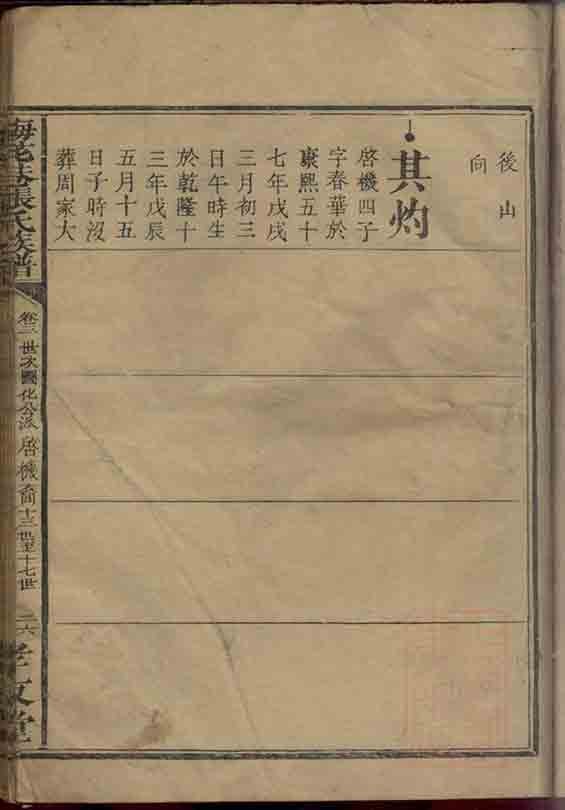 後山
向
其灼
啓機四子
字春華於
康熙五十
七年戊戌
三月初三
日午時生
於乾隆十
三年戊辰
五月十五
日子時沒
葬周家大
張氏族譜
卷三 世次圖 化公派 啓機裔 十三世至十七世
二六
孝友堂